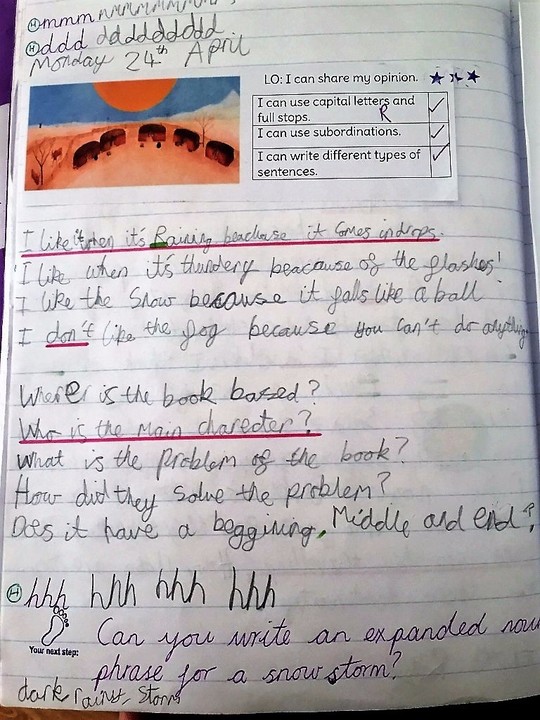 H mmm mmmmmmmm
H ddd ddddddddd
Monday 24th April
LO: I can share my opinion.
I can use capital letters and full stops. R
I can use subordinations.
I can write different types of sentences.
I like it when it's Raining beachause it comes in drops.
I like when it's thundery beacause of the flashes!
I like the Snow because it falls like a ball
I don't like the fog because you can't do anything
Where is the book based?
Who is the main charecter?
What is the problem of the book?
How did they solve the problem?
Does it have a beggining, Middle and end?
H hhh hhh hhh hhh
Your next step:
Can you write an expanded noun
phrase for a snow storm?
dark rainy storm